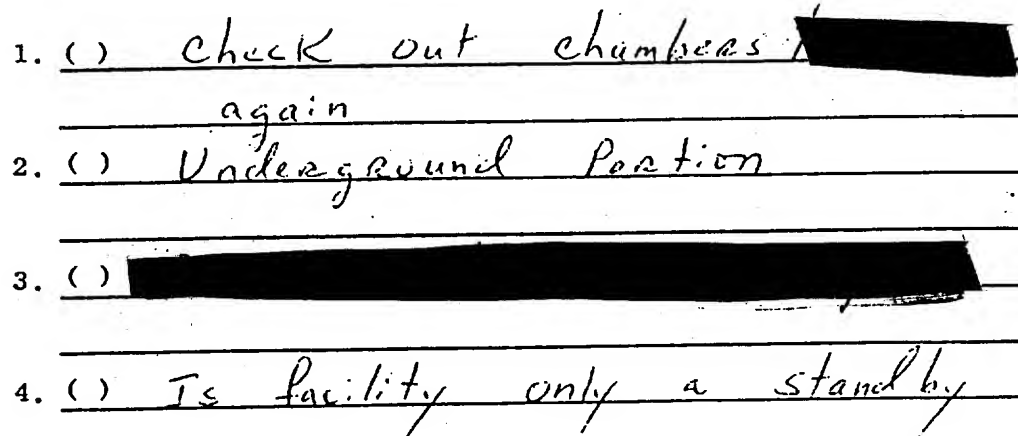 1. ( ) Check out chambers
again
2. ( ) Underground Portion
3. ( )
4. ( ) Is facility only a standby